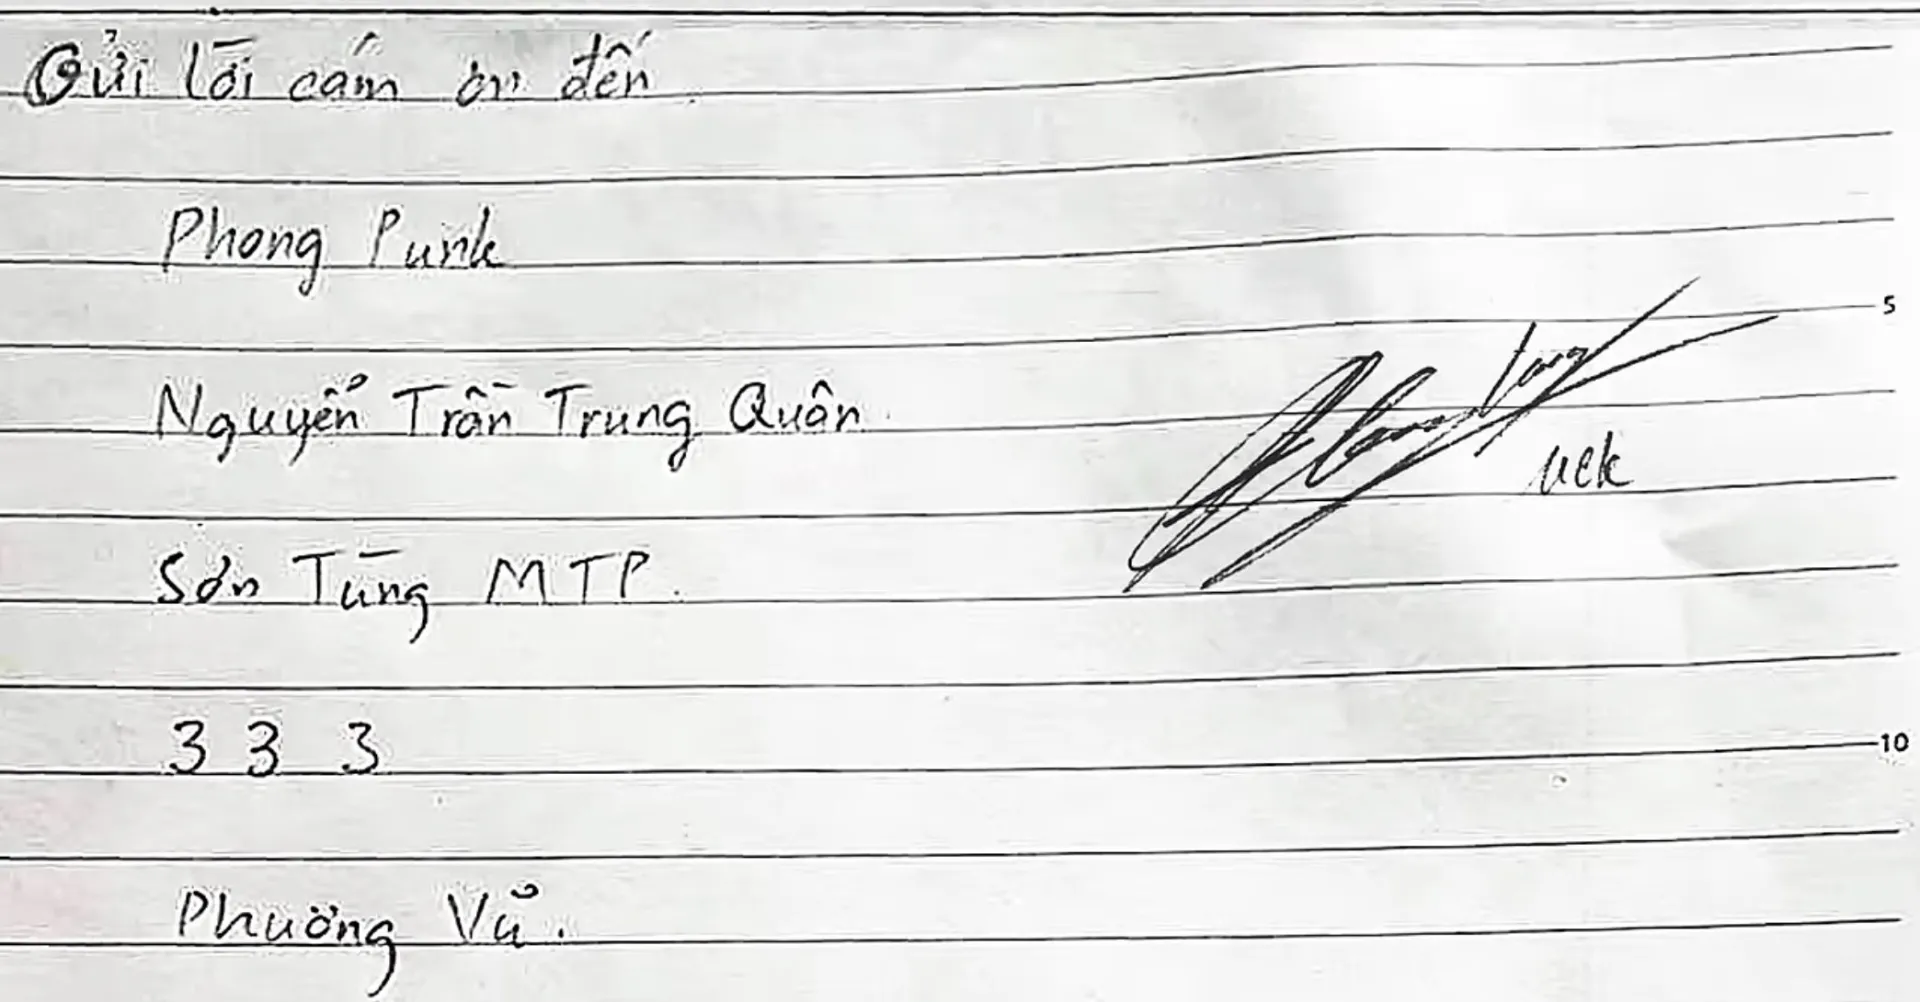 Gửi lời cám ơn đến
Phong Punk
5
Nguyễn Trần Trung Quân.
uck
Sơn Tùng MTP.
3 3 3
10
Phương Vũ.